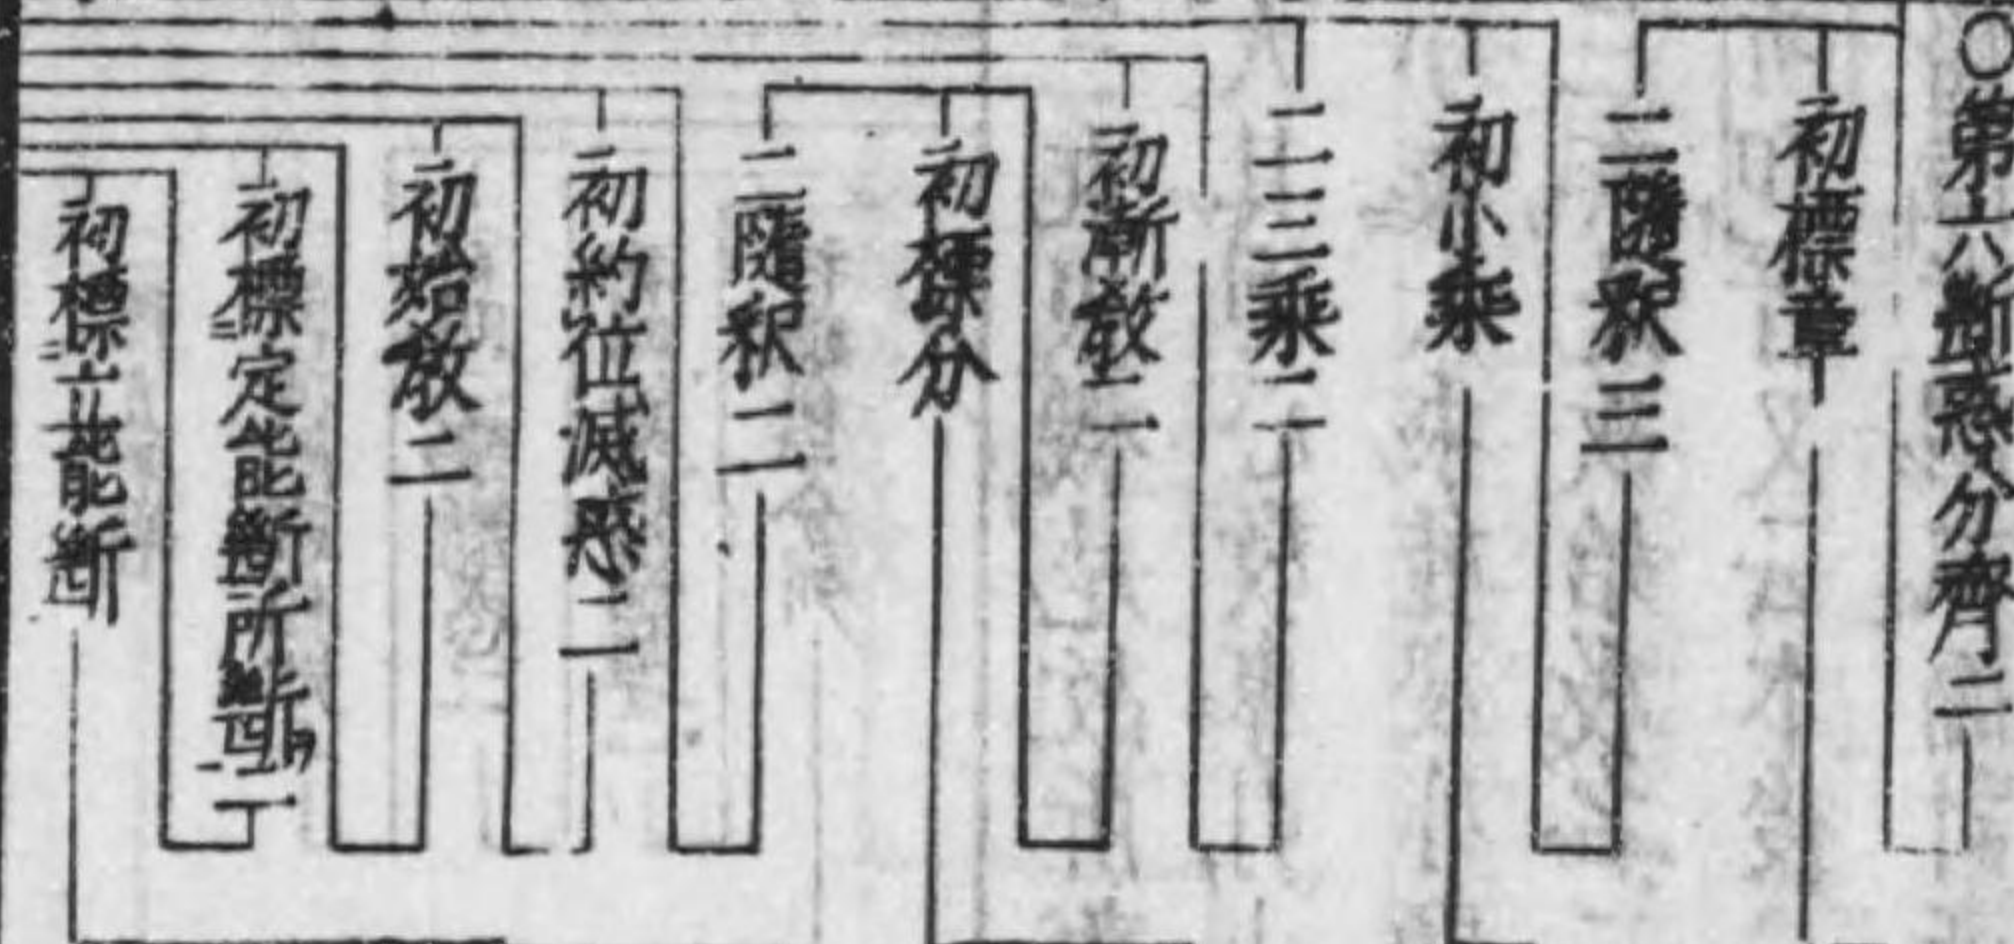 〇第六斷惑分齊二
初標章
二隨釈三
初小乗
二三乗二
初漸教二
初標分
二隨釈二
初約位滅惑二
初始教二
初標定能斷所斷二
初標立能斷